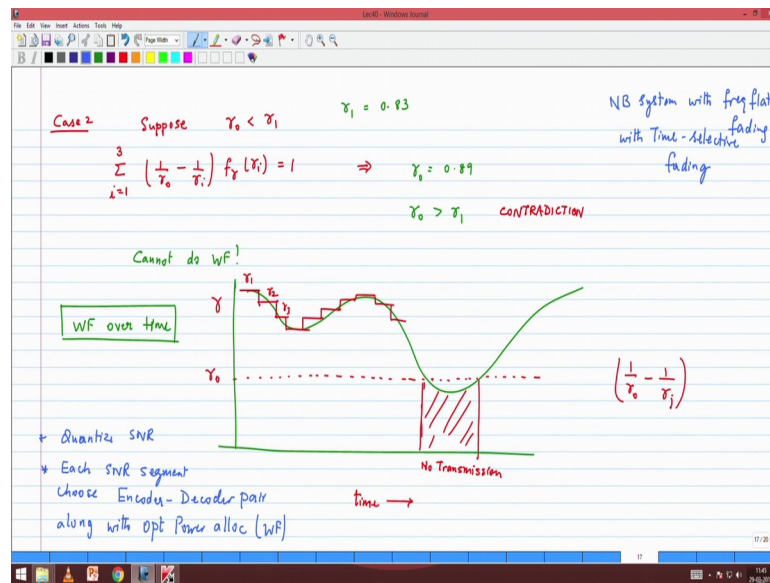 Lec40 - Windows Journal
File Edit View Insert Actions Tools Help
Page Width
B I
Case 2 Suppose γ₀ < γ₁
γ₁ = 0.83
NB system with freq flat
fading
with Time-selective
fading
3
Σ (1/γ₀ - 1/γᵢ) fᵧ(γᵢ) = 1 ⇒ γ₀ = 0.89
i=1
γ₀ > γ₁ CONTRADICTION
Cannot do WF!
WF over time
γ
γ₁
γ₂
γ₃
γ₀
(1/γ₀ - 1/γⱼ)
No Transmission
time →
+ Quantize SNR
* Each SNR segment
choose Encoder-Decoder pair
along with opt Power alloc (WF)
17 / 20
17
11:45